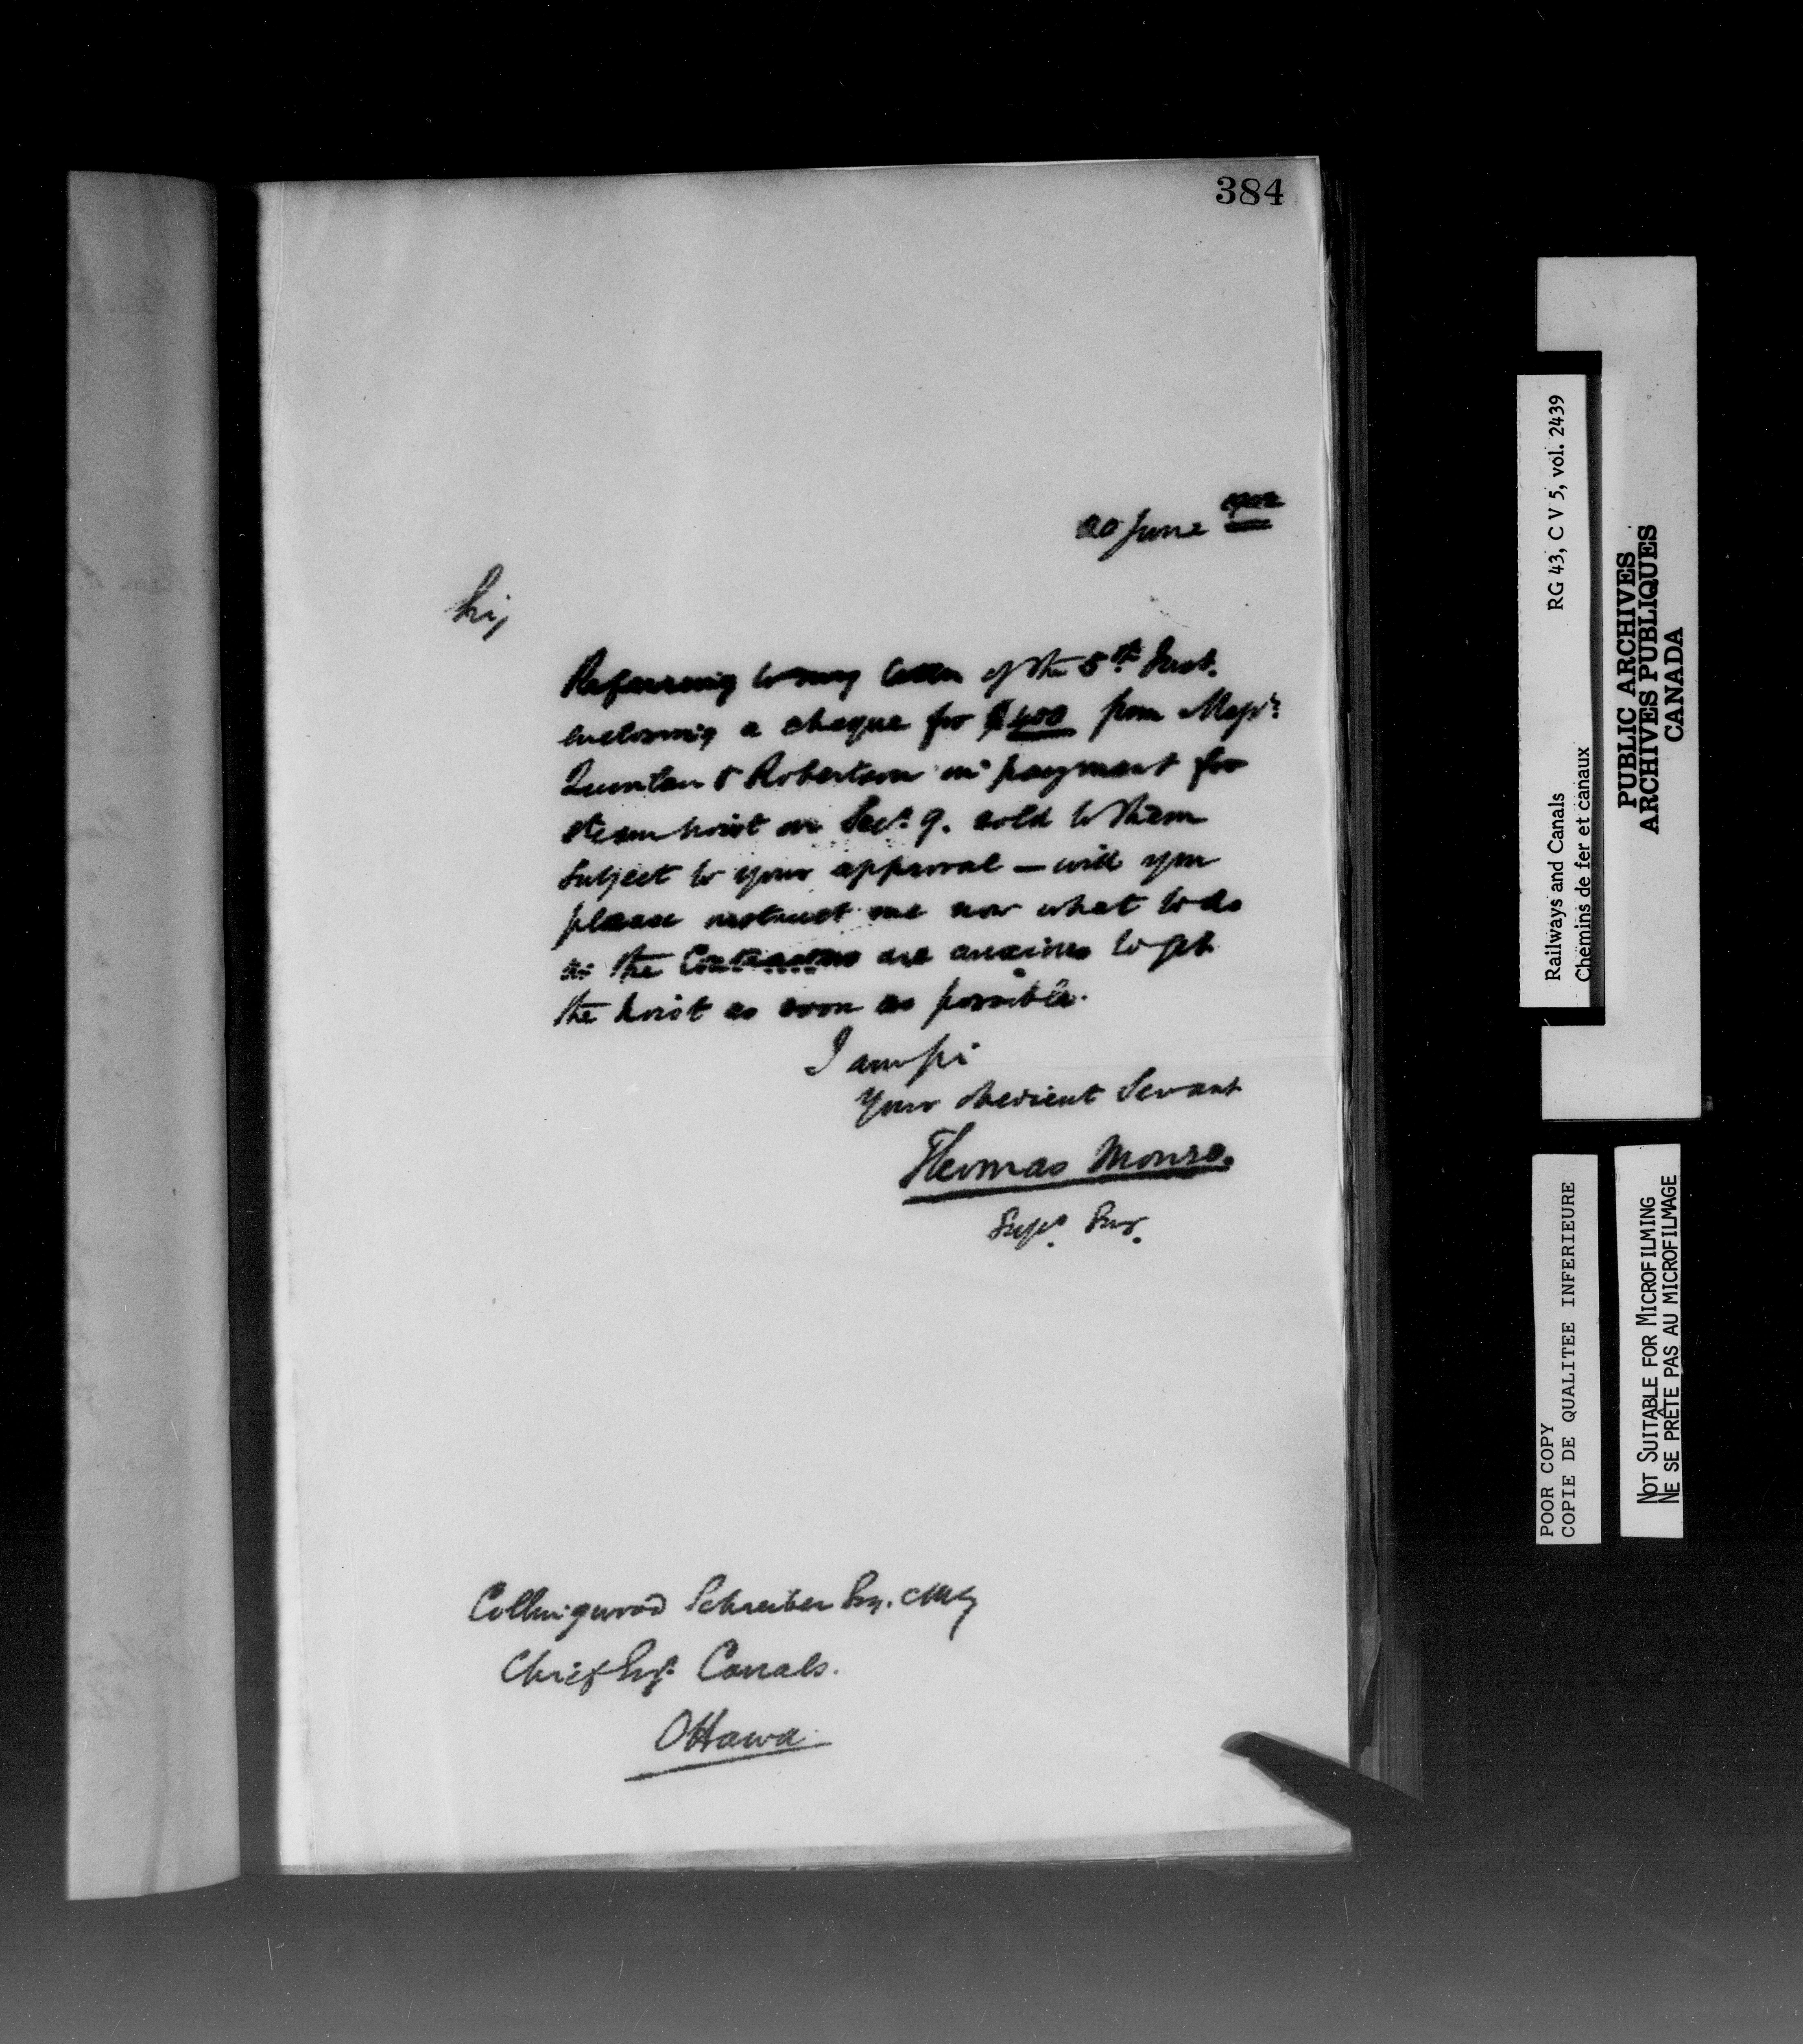 384
20 June
Sir,
Referring to my letter of the 5th Inst.
enclosing a cheque for $400 from Messrs.
Quinlan & Robertson in payment for
steam hoist on Sec. 9. sold to them
subject to your approval — will you
please instruct me now what to do
as the Contractors are anxious to get
the hoist as soon as possible.
I am Sir
Your obedient Servant
Thomas Monro.
Supt. Eng.
Collingwood Schreiber Esq. CMG
Chief Engr. Canals.
Ottawa
Railways and Canals RG 43, C V 5, vol. 2439
Chemins de fer et canaux
PUBLIC ARCHIVES
ARCHIVES PUBLIQUES
CANADA
POOR COPY
COPIE DE QUALITEE INFERIEURE
NOT SUITABLE FOR MICROFILMING
NE SE PRÊTE PAS AU MICROFILMAGE